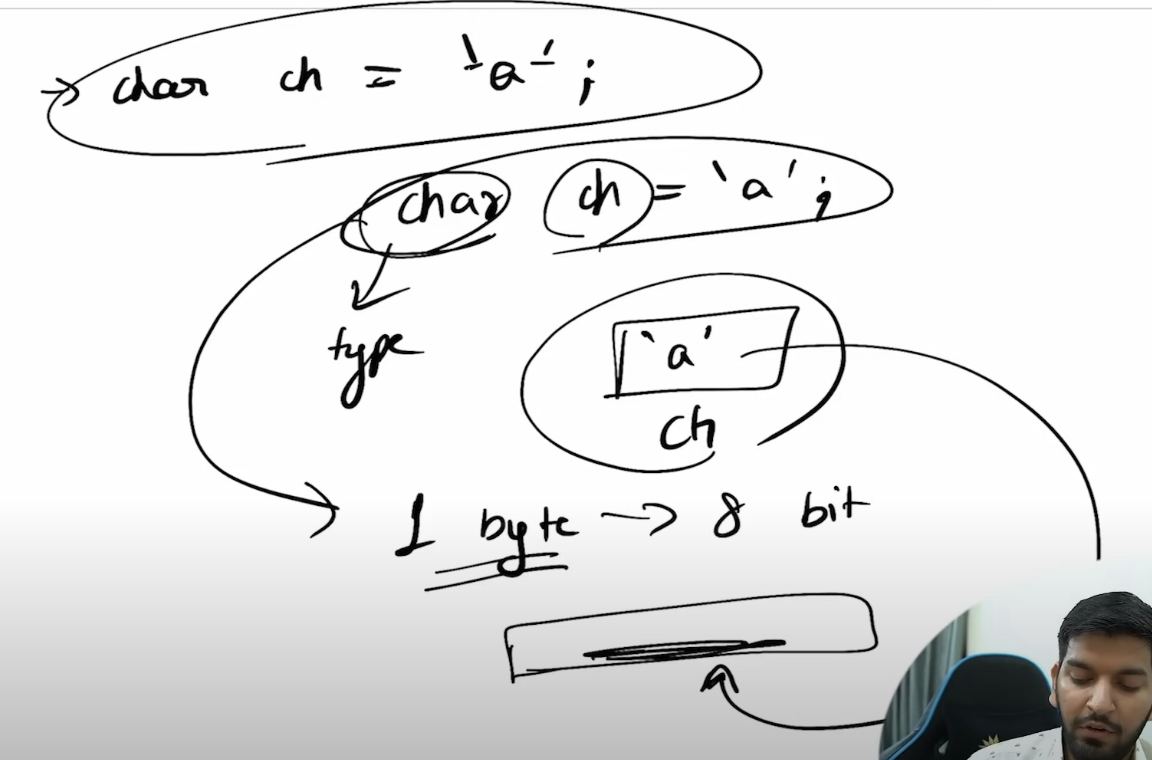 → char ch = 'a';
char ch = 'a';
type
'a'
ch
1 byte → 8 bit